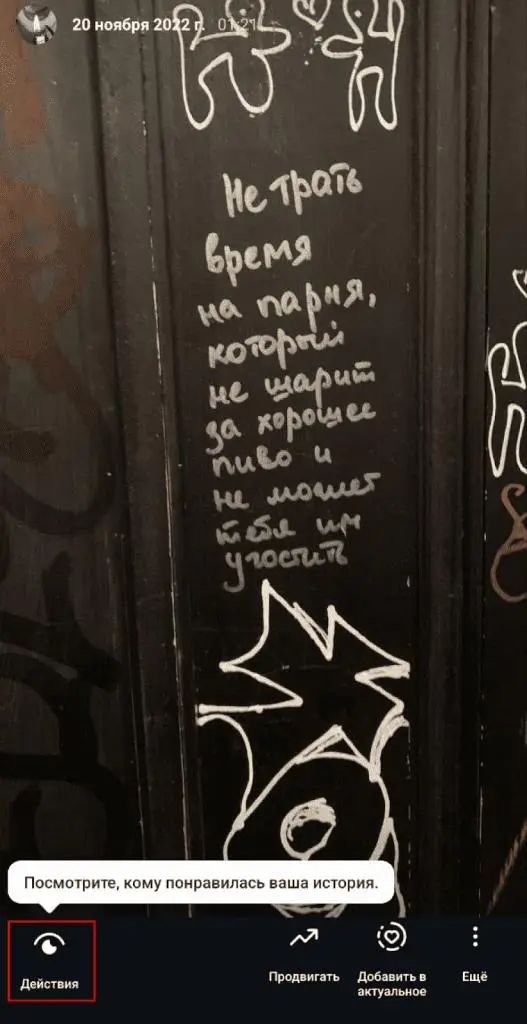 20 ноября 2022 г. 01:21
Не трать
время
на парня,
который
не шарит
за хорошее
пиво и
не может
тебя им
угостить
Посмотрите, кому понравилась ваша история.
Действия
Продвигать
Добавить в
актуальное
Ещё